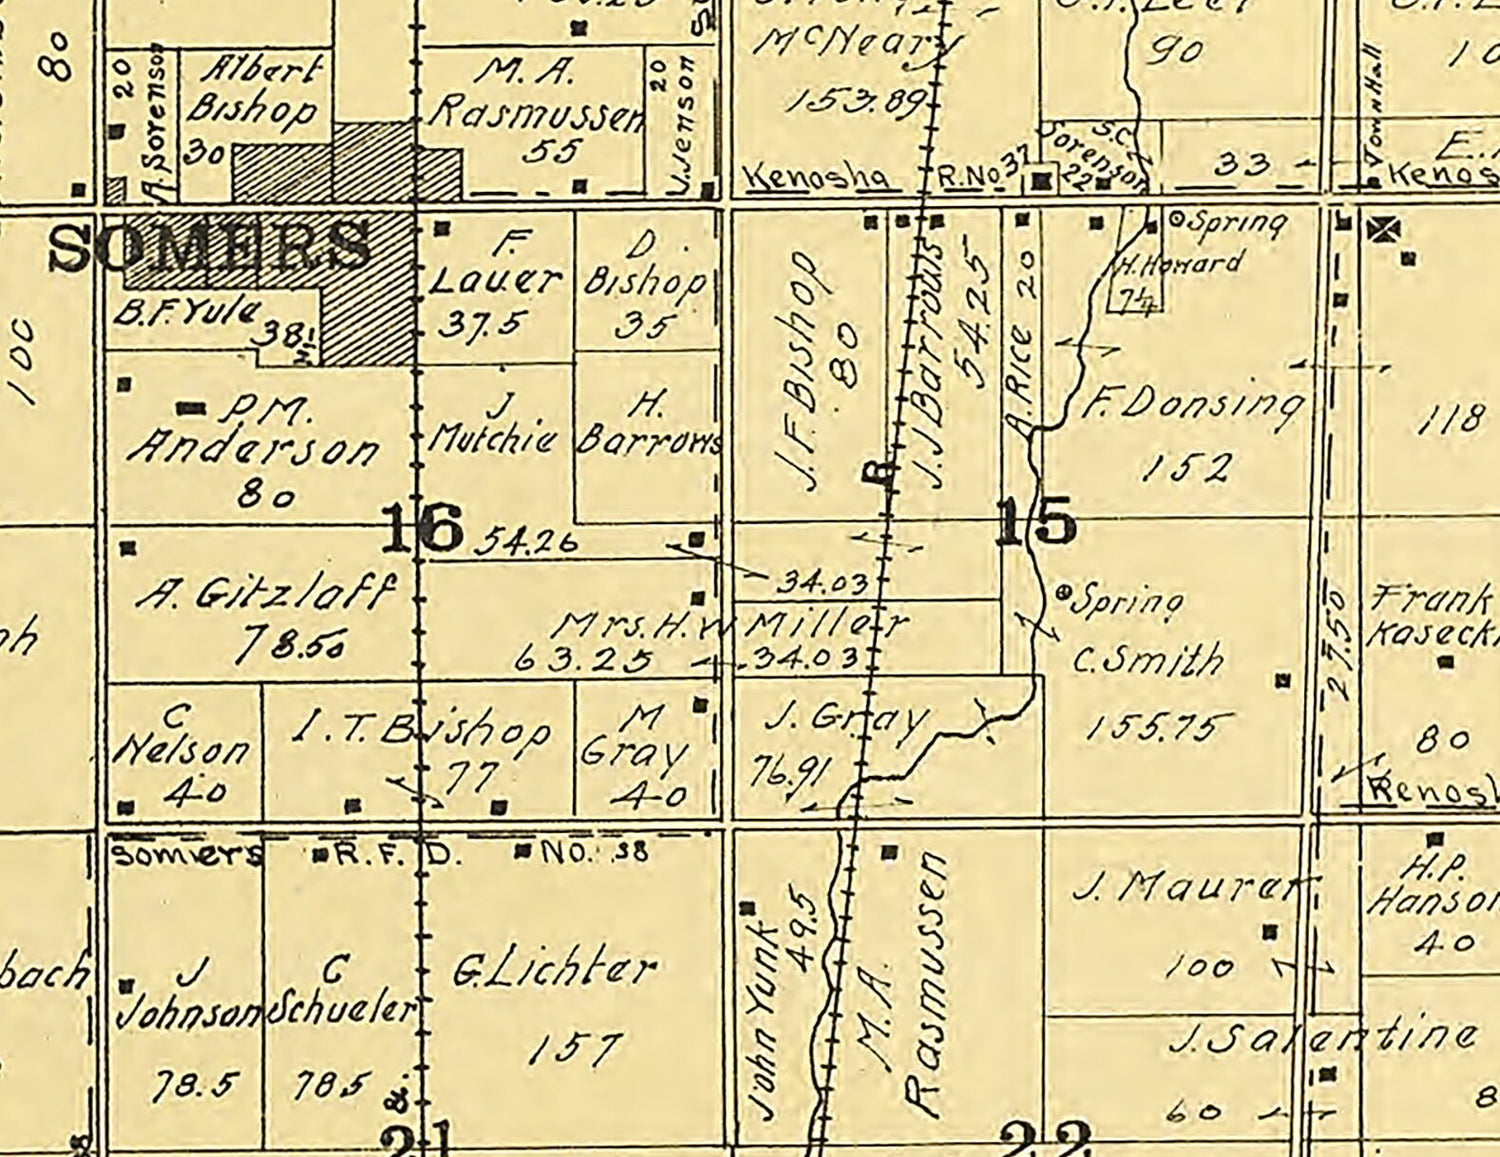 80
20
A. Sorenson
Albert
Bishop
30
M. A.
Rasmussen
55
20
J. Jenson
McNeary
153.89
90
S.C.
Sorenson
22
33
Town Hall
10
Kenosha R.No 37
Kenos
SOMERS
B.F. Yule
38½
F.
Lauer
37.5
D.
Bishop
35
J. F. Bishop
80
J. J Barrows
54.25
A. RICE 20
Spring
H. Howard
7¼
F. Donsing
152
100
118
P M.
Anderson
80
J
Mutchie
H.
Barrows
R
16
54.26
15
34.03
A. Gitzlaff
78.50
Mrs. H. W Miller
63.25
34.03
Spring
C. Smith
155.75
27.50
Frank
Kaseck
80
Kenosh
C
Nelson
40
I. T. Bishop
77
M
Gray
40
J. Gray
76.91
Somers R. F. D. NO. 38
J
Johnson
78.5
C
Schueler
78.5
G. Lichter
157
John Yunk
49.5
M. A.
Rasmussen
J. Maurer
100
H.P.
Hanson
40
J. Salentine
60
8
bach
R.
21
22